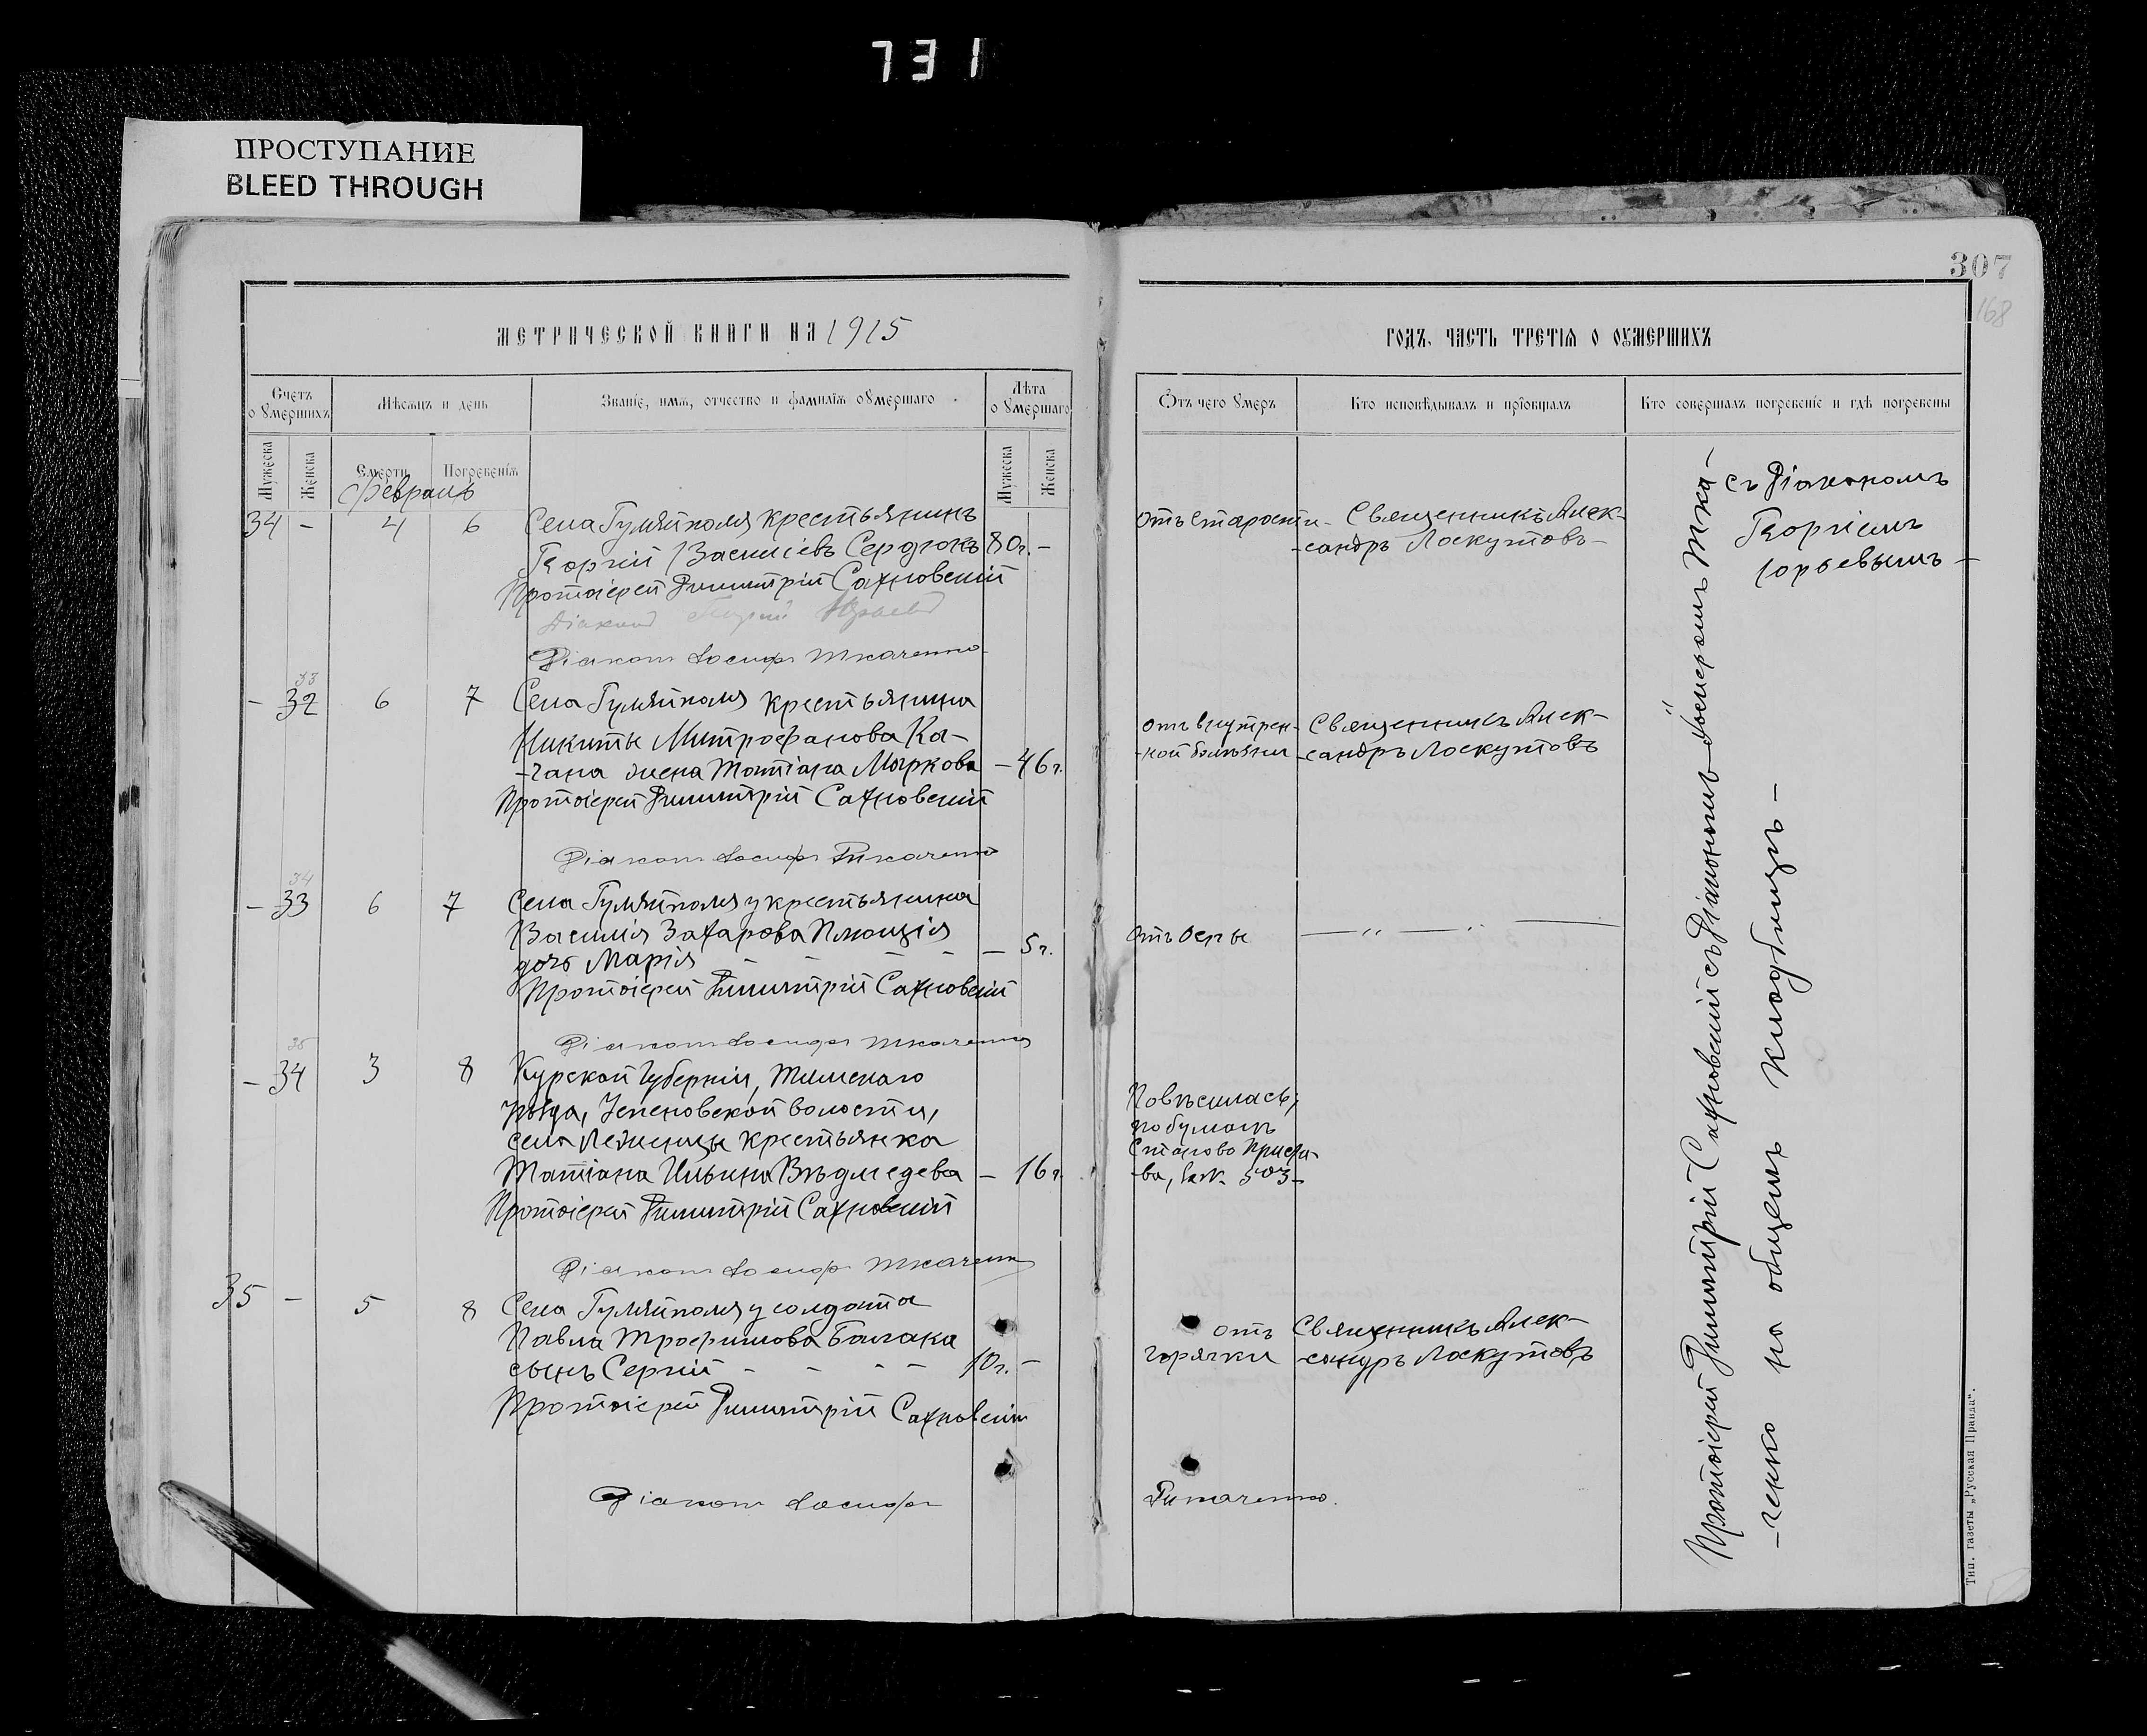 731
ПРОСТУПАНИЕ
BLEED THROUGH
307
168
МЕТРИЧЕСКОЙ КНИГИ НА 1915
ГОДЪ, ЧАСТЬ ТРЕТІЯ О ОУМЕРШИХЪ
Счетъ о умершихъ
Мѣсяцъ и день
Званіе, имя, отчество и фамилія оумершаго
Лѣта о умершаго
Отъ чего умеръ
Кто исповѣдывалъ и пріобщалъ
Кто совершалъ погребеніе и гдѣ погребены
Мужеска
Женска
Смерти
Погребенія
Мужеска
Женска
Февраль
34 - 4 6 Села Гуляйполя крестьянинъ
Георгій Василіевъ Сердюкъ 80г. -
Протоіерей Димитрій Сахновскій
Діаконъ Георгій Юрьевъ
Діаконъ Іосифъ Ткаченко
отъ старости - Священникъ Алек-
-сандръ Лоскутовъ -
33
- 32 6 7 Села Гуляйполя крестьянина
Никиты Митрофанова Ка-
-чана жена Татіана Маркова - 46г.
Протоіерей Димитрій Сахновскій
Діаконъ Іосифъ Ткаченко
отъ внутрен- Священникъ Алек-
-ной болѣзни -сандръ Лоскутовъ
34
- 33 6 7 Села Гуляйполя у крестьянина
Василія Захарова
дочь Марія - - - - - 5г.
Протоіерей Димитрій Сахновскій
Діаконъ Іосифъ Ткаченко
отъ оспы — " — " —
35
- 34 3 8 Курской губерніи, Тимскаго
уѣзда, Успеновской волости,
села крестьянка
Татіана Ильина Вѣдмедева - 16г.
Протоіерей Димитрій Сахновскій
Діаконъ Іосифъ Ткаченко
Повѣсилась,
по бумагѣ
Станово Приста-
-ва, за № 503 -
35 - 5 8 Села Гуляйполя у солдата
Павла Трофимова Балака
сынъ Сергій - - - - 10г. -
Протоіерей Димитрій Сахновскій
Діаконъ Іосифъ Ткаченко.
отъ Священникъ Алек-
горячки -сандръ Лоскутовъ
Протоіерей Димитрій Сахновскій съ Діакономъ Іосифомъ Тка-
-ченко на общемъ кладбищѣ -
съ Діакономъ
Георгіемъ
Юрьевымъ -
Тип. газеты „Русская Правда“.